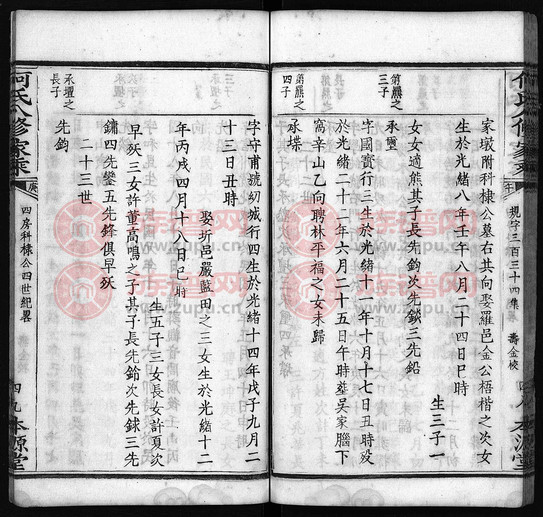 家墩附科棣公墓右共向娶羅邑金公梧楷之次女
生於光緒八年壬午八月二十四日巳時
生三子一
女女適熊其子長先鈞次先錟三先鉛
第羆之
三子
承璽
字國賓行三生於光緒十一年十月十七日丑時歿
於光緒二十二年六月二十五日午時塟吴家腦下
窩辛山乙向聘林平福之女未歸
第羆之
四子
承堞
規字三百三十四集
壽金梭
本源堂
何氏八修家乘
四房科棣公四世紀畧
四九
本源堂
字守甫號紉城行四生於光緒十四年戊子九月二
十三日丑時
娶圻邑嚴藍田之三女生於光緒十二
年丙戌四月十八日巳時
生五子三女長女許夏次
早殀三女許董高鳴之子其子長先鈴次先銶三先
鏞四先鑾五先鋒俱早殀
二十三世
承壇之
長子
先鈞
家譜网
www.zupu.cn